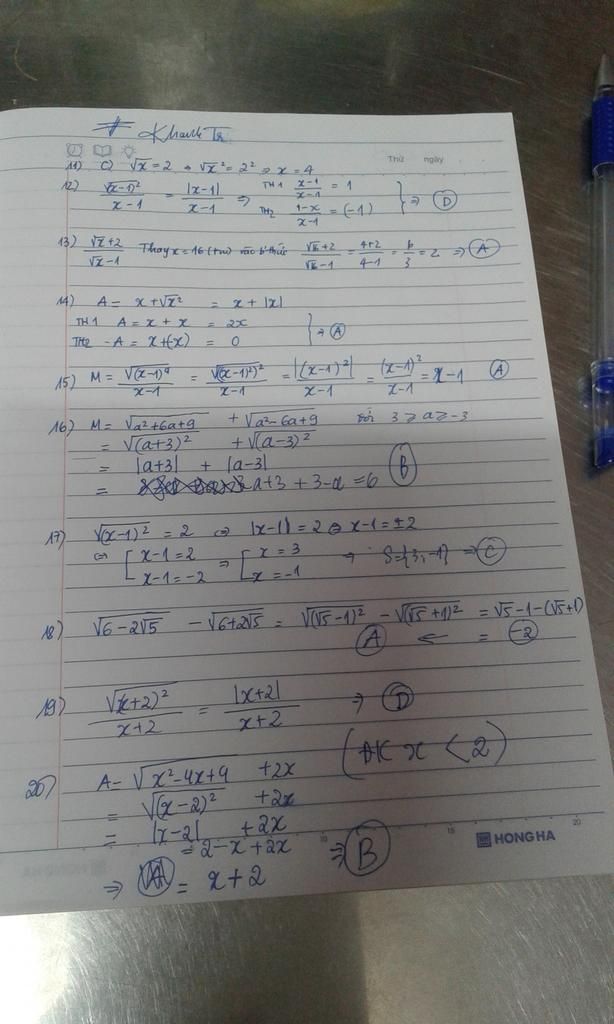 # Khanh Tr
Thứ ngày
11) C) √x = 2 ⇒ √x² = 2² ⇒ x = 4
12) √(x-1)² / x-1 = |x-1| / x-1 ⇒ TH1 x-1 / x-1 = 1
TH2 1-x / x-1 = (-1) } ⇒ D
13) √x+2 / √x-1 Thay x = 16 (tm) vào b'thức √16+2 / √16-1 = 4+2 / 4-1 = 6/3 = 2 ⇒ A
14) A = x + √x² = x + |x|
TH1 A = x + x = 2x
TH2 - A = x+(-x) = 0 } ⇒ A
15) M = √(x-1)⁴ / x-1 = √((x-1)²)² / x-1 = |(x-1)²| / x-1 = (x-1)² / x-1 = x-1 A
16) M = √a²+6a+9 + √a²-6a+9 với 3 ≥ a ≥ -3
= √(a+3)² + √(a-3)²
= |a+3| + |a-3|
= a+3 + 3-a = 6 B
17) √(x-1)² = 2 ⇔ |x-1| = 2 ⇔ x-1 = ±2
⇔ [ x-1 = 2 ⇒ [ x = 3
x-1 = -2 x = -1 ⇒ S={3;-1} ⇒ C
18) √6-2√5 - √6+2√5 = √(√5-1)² - √(√5+1)² = √5-1-(√5+1)
A ⇐ = -2
19) √(x+2)² / x+2 = |x+2| / x+2 ⇒ D
20) A = √x²-4x+4 + 2x (ĐK x < 2)
= √(x-2)² + 2x
= |x-2| + 2x
= 2-x+2x ⇒ B
⇒ A = x+2
HONG HA
10
15
20